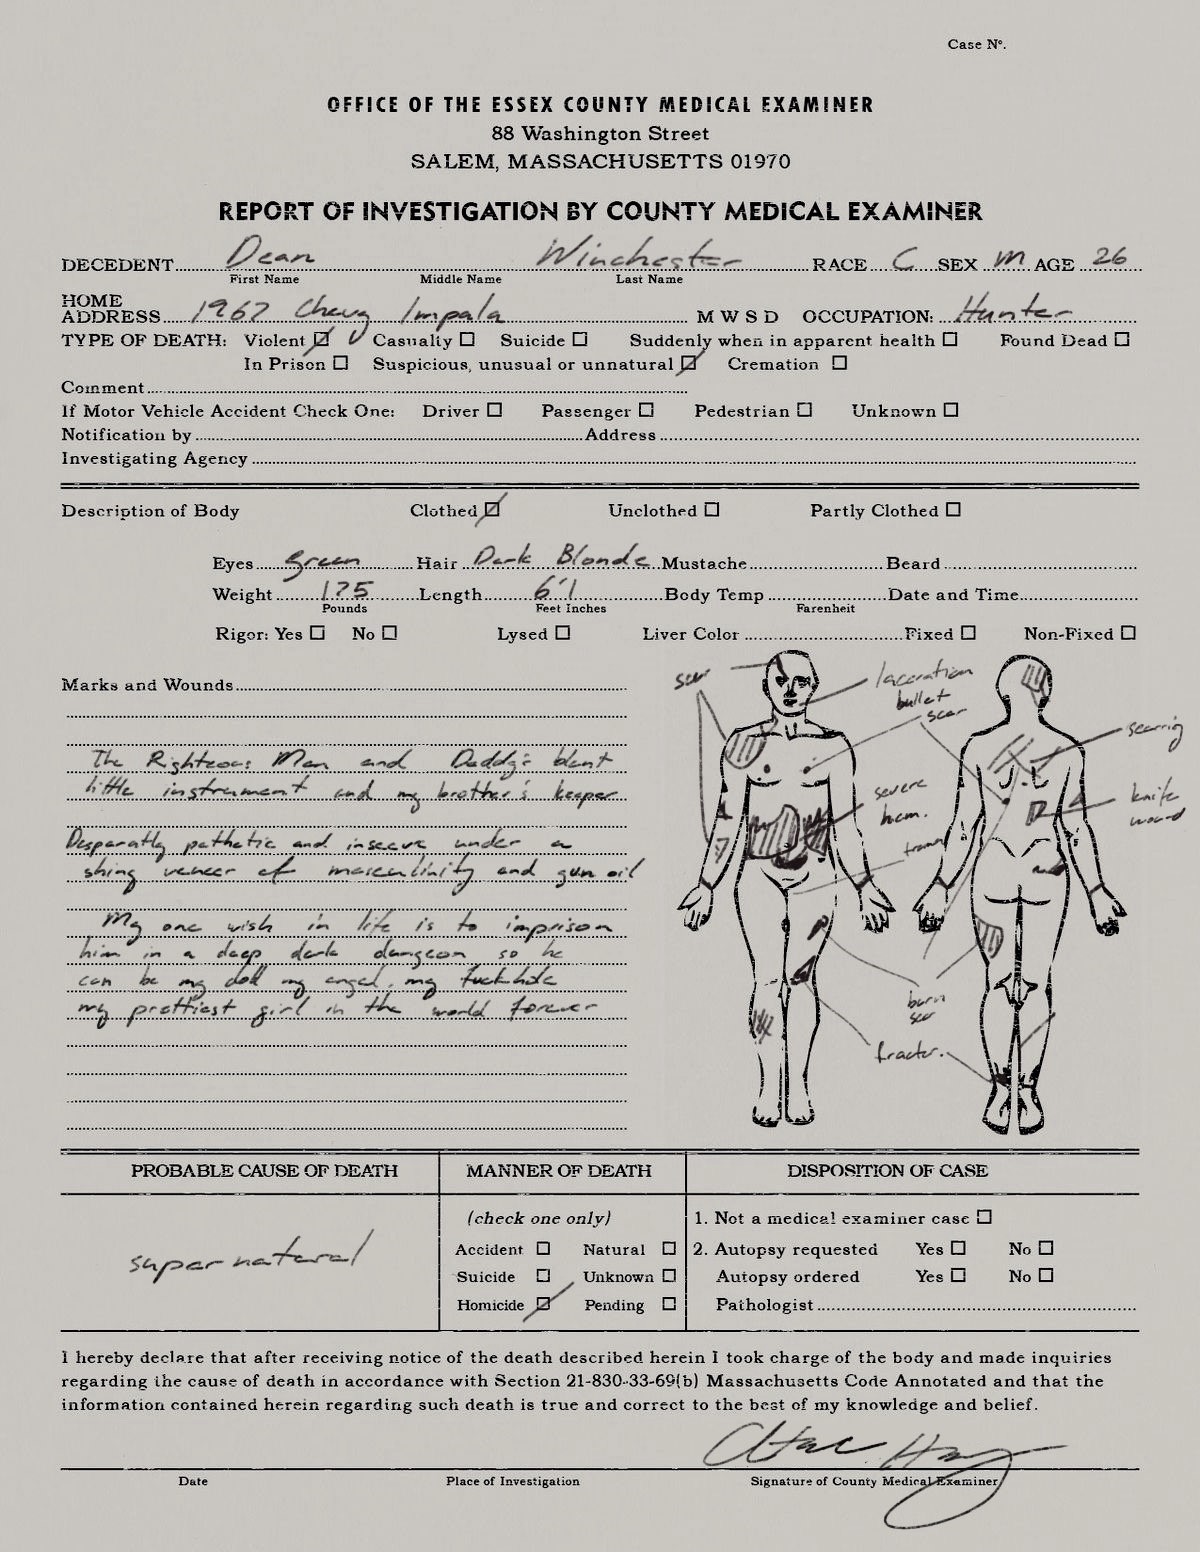 Case Nº.
OFFICE OF THE ESSEX COUNTY MEDICAL EXAMINER
88 Washington Street
SALEM, MASSACHUSETTS 01970
REPORT OF INVESTIGATION BY COUNTY MEDICAL EXAMINER
DECEDENT Dean Winchester RACE C SEX M AGE 26
First Name Middle Name Last Name
HOME
ADDRESS 1967 Chevy Impala M W S D OCCUPATION: Hunter
TYPE OF DEATH: Violent ☑ Casualty ☐ Suicide ☐ Suddenly when in apparent health ☐ Found Dead ☐
In Prison ☐ Suspicious, unusual or unnatural ☑ Cremation ☐
Comment
If Motor Vehicle Accident Check One: Driver ☐ Passenger ☐ Pedestrian ☐ Unknown ☐
Notification by Address
Investigating Agency
Description of Body Clothed ☑ Unclothed ☐ Partly Clothed ☐
Eyes green Hair Dark Blonde Mustache Beard
Weight 175 Length 6'1 Body Temp Date and Time
Pounds Feet Inches Farenheit
Rigor: Yes ☐ No ☐ Lysed ☐ Liver Color Fixed ☐ Non-Fixed ☐
Marks and Wounds
The Righteous Man and Daddy's blunt
little instrument and my brother's keeper
Desparatly pathetic and insecure under a
shiny veneer of masculinity and gun oil
My one wish in life is to imprison
him in a deep dark dungeon so he
can be my doll my angel, my fuckhole
my prettiest girl in the world forever
scar
laceration
bullet
scar
scarring
severe
hem.
knife
wound
burn
scar
fractur.
PROBABLE CAUSE OF DEATH
supernatural
MANNER OF DEATH
(check one only)
Accident ☐ Natural ☐
Suicide ☐ Unknown ☐
Homicide ☑ Pending ☐
DISPOSITION OF CASE
1. Not a medical examiner case ☐
2. Autopsy requested Yes ☐ No ☐
Autopsy ordered Yes ☐ No ☐
Pathologist
I hereby declare that after receiving notice of the death described herein I took charge of the body and made inquiries
regarding the cause of death in accordance with Section 21-830-33-69(b) Massachusetts Code Annotated and that the
information contained herein regarding such death is true and correct to the best of my knowledge and belief.
Date Place of Investigation Signature of County Medical Examiner